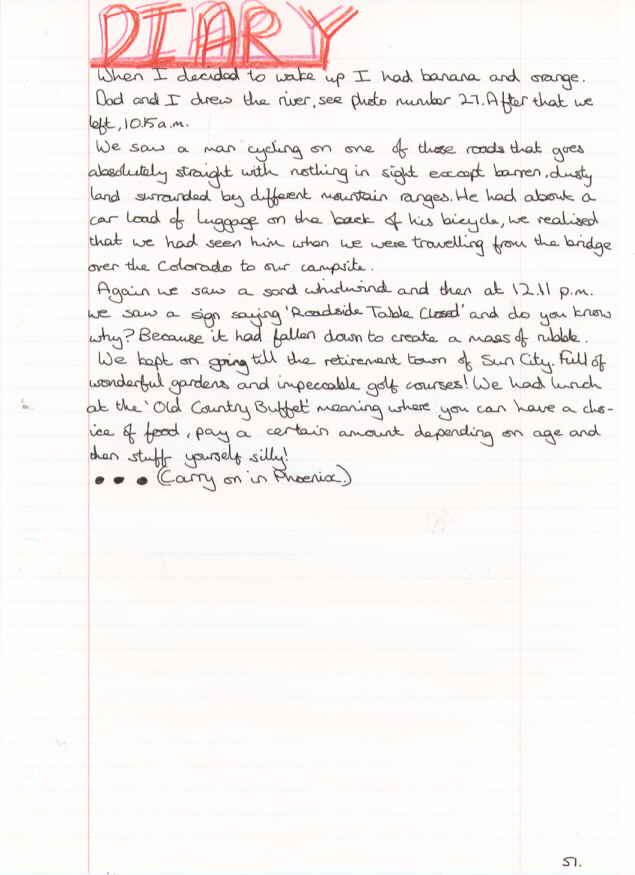 DIARY
When I decided to wake up I had banana and orange.
Dad and I drew the river, see photo number 27. After that we
left, 10.15 a.m.
We saw a man cycling on one of those roads that goes
absolutely straight with nothing in sight except barren, dusty
land surrounded by different mountain ranges. He had about a
car load of luggage on the back of his bicycle, we realised
that we had seen him when we were travelling from the bridge
over the Colorado to our campsite.
Again we saw a sand whirlwind and then at 12.11 p.m.
we saw a sign saying 'Roadside Table Closed' and do you know
why? Because it had fallen down to create a mass of rubble.
We kept on going till the retirement town of Sun City. Full of
wonderful gardens and impeccable golf courses! We had lunch
at the 'Old Country Buffet' meaning where you can have a cho-
ice of food, pay a certain amount depending on age and
then stuff yourself silly!
● ● ● (Carry on in Phoenix.)
57.